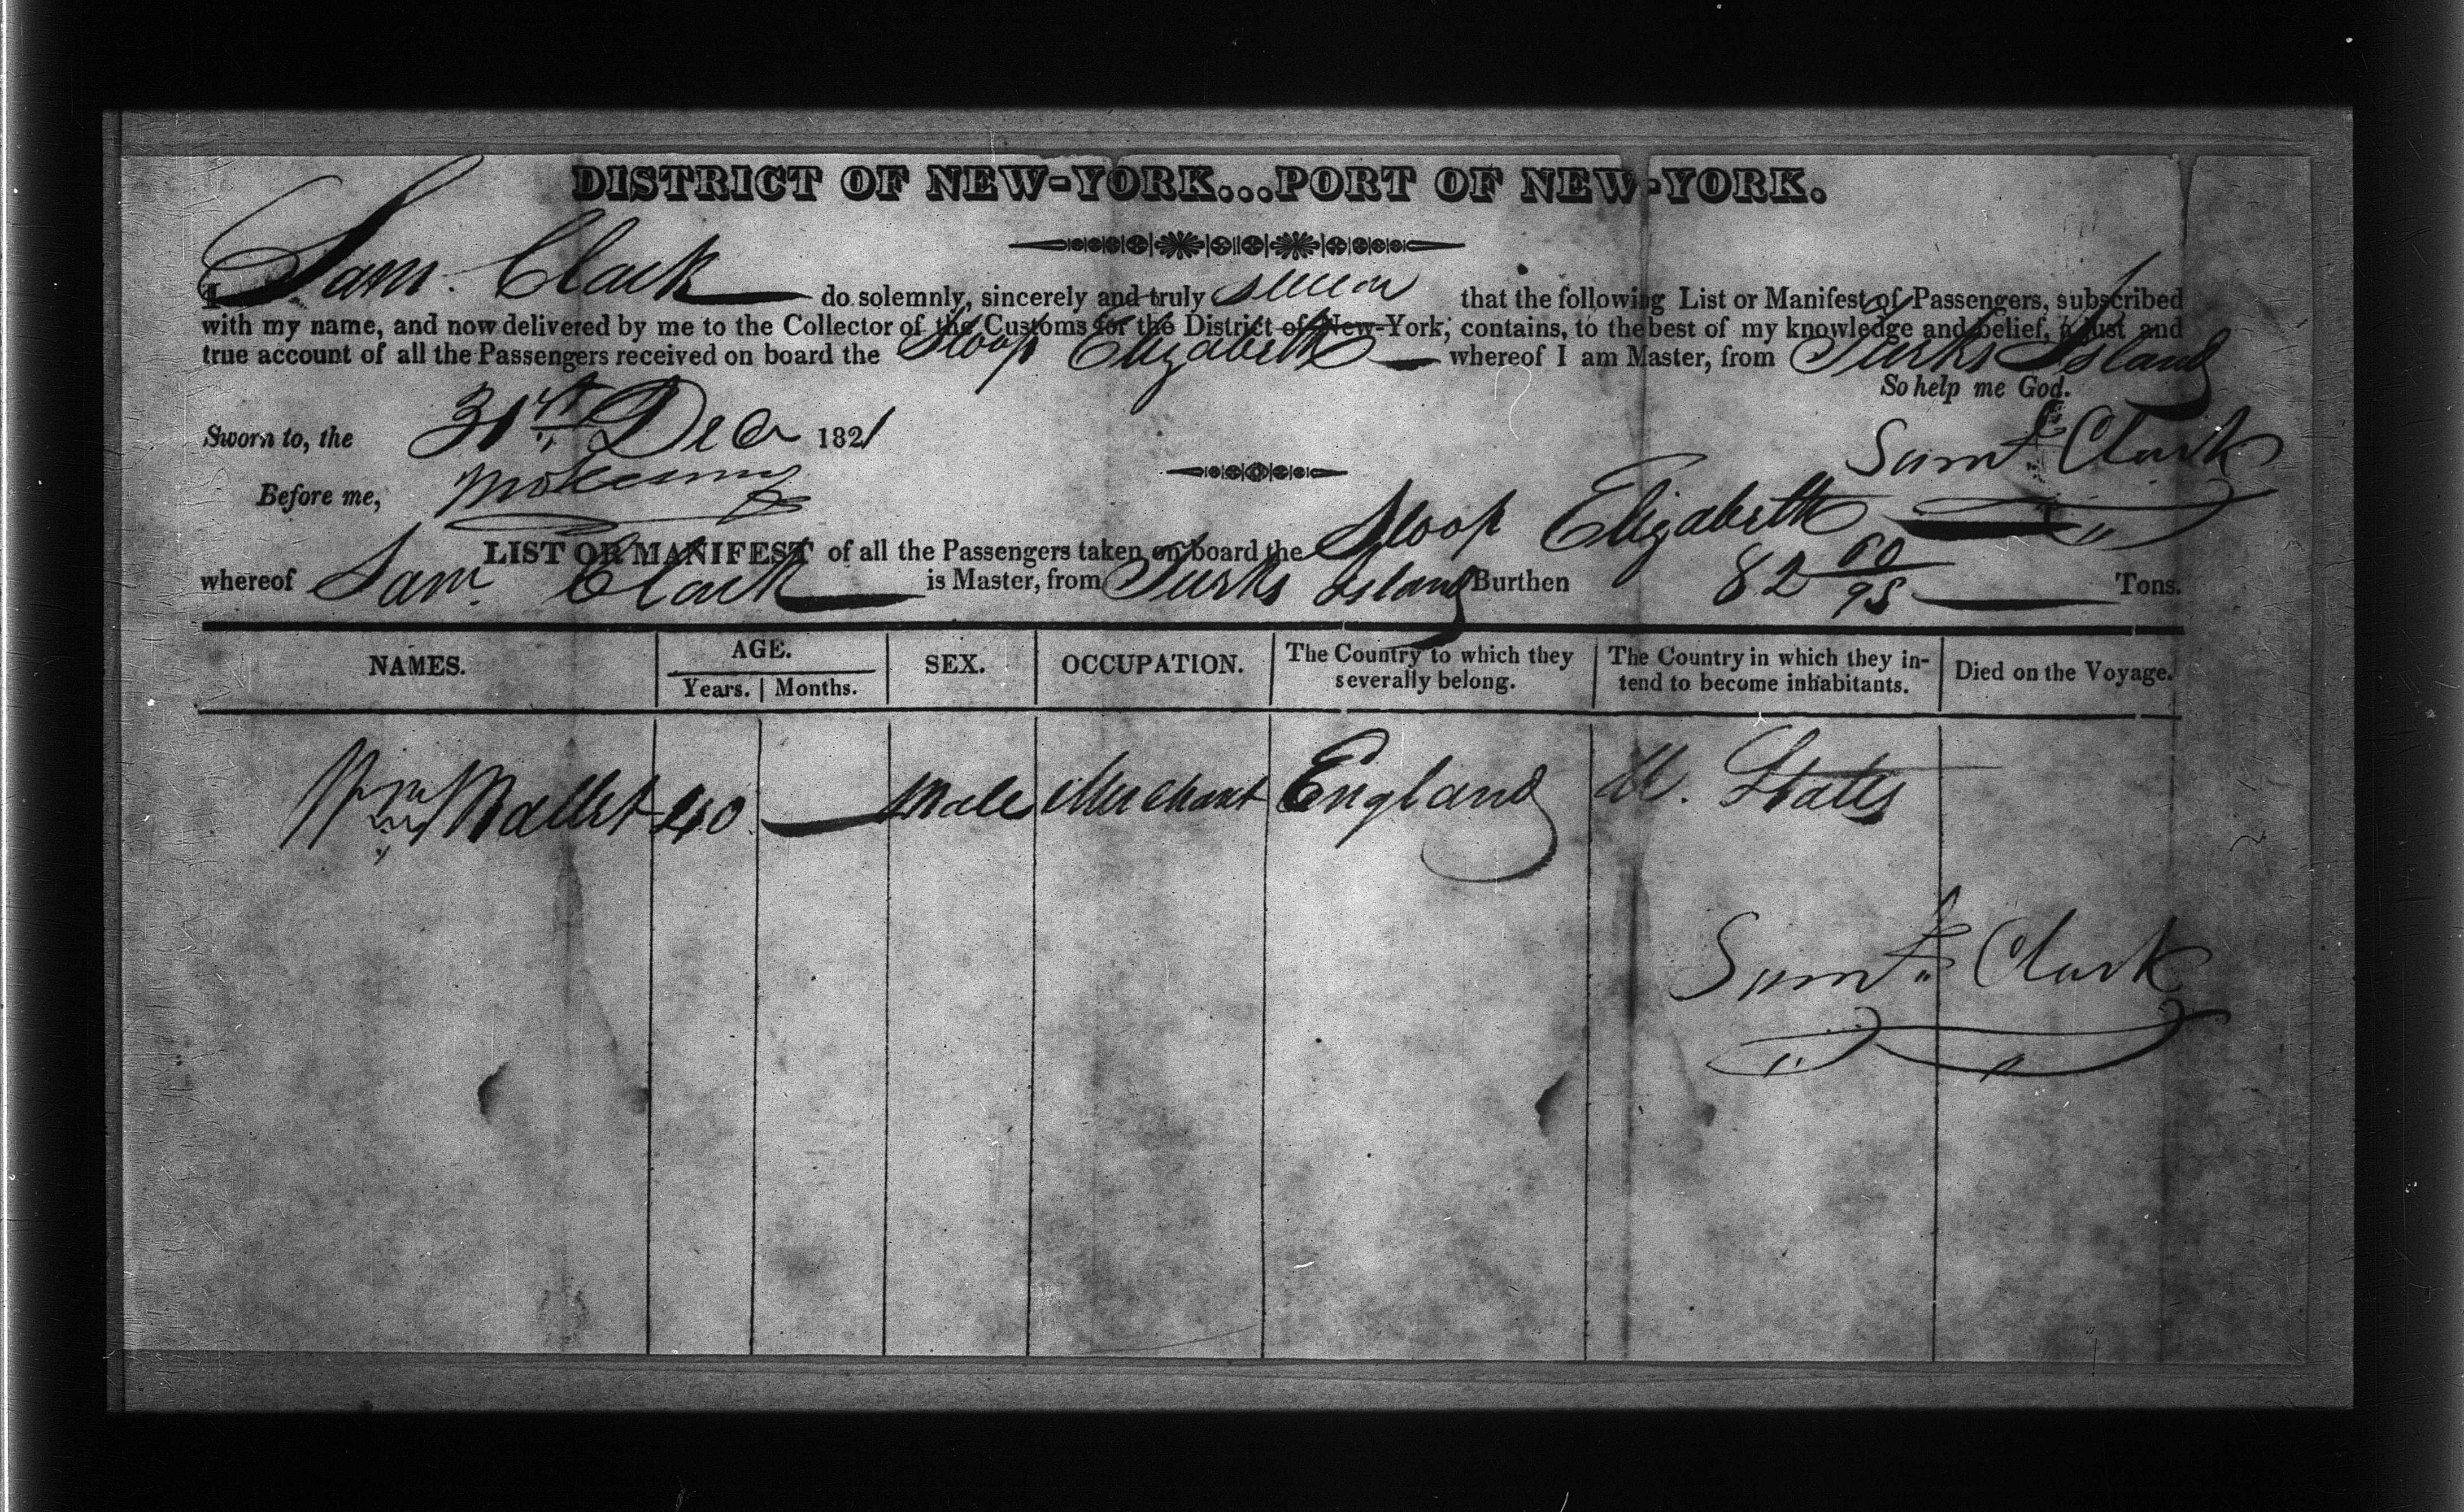 DISTRICT OF NEW-YORK...PORT OF NEW-YORK.
I Sam. Clark do solemnly, sincerely and truly swear that the following List or Manifest of Passengers, subscribed
with my name, and now delivered by me to the Collector of the Customs for the District of New-York, contains, to the best of my knowledge and belief, a just and
true account of all the Passengers received on board the Sloop Elizabeth whereof I am Master, from Turks Island
So help me God.
Sworn to, the 31st Dec 1821
Saml Clark
Before me,
LIST OR MANIFEST of all the Passengers taken on board the Sloop Elizabeth
whereof Sam. Clark is Master, from Turks Island Burthen 82 60/95 Tons.
NAMES. AGE. Years. Months. SEX. OCCUPATION. The Country to which they severally belong. The Country in which they intend to become inhabitants. Died on the Voyage.
Wm Mallet 40 Male Merchant England U. States
Saml Clark